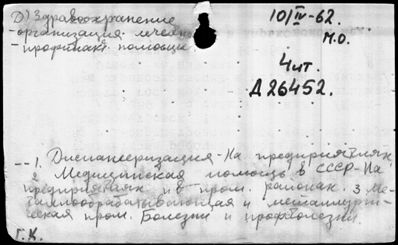 Д) Здравоохранение
-организация лечебно
-профилакт помощи
10/IV-62.
М.О.
Чит.
Д26452.
--1. Диспансеризация-На предприятиях
2 Медицинская помощь в СССР-На
предприятиях и в пром. районах. 3 Ме-
таллообрабатывающая и металлурги-
ческая пром. Болезни и профболезни.
Г.К.